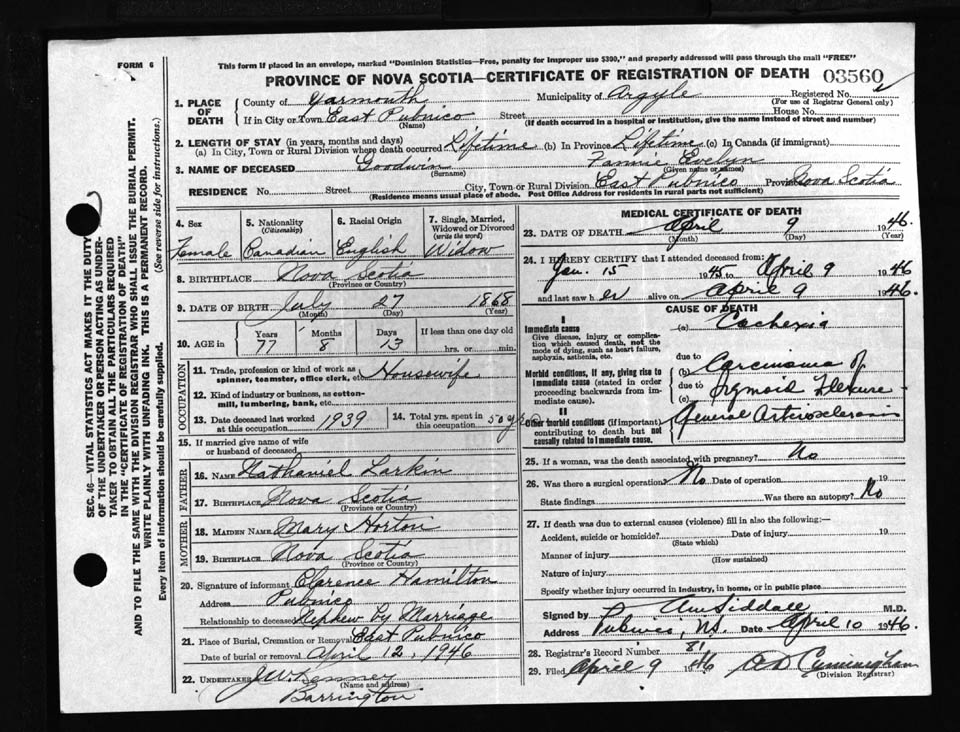 FORM 6
This form if placed in an envelope, marked "Dominion Statistics—Free, penalty for improper use $300," and properly addressed will pass through the mail "FREE"
PROVINCE OF NOVA SCOTIA—CERTIFICATE OF REGISTRATION OF DEATH 03560
1. PLACE OF DEATH
County of Yarmouth Municipality of Argyle Registered No.
(For use of Registrar General only)
If in City or Town East Pubnico Street House No.
(Name) (If death occurred in a hospital or institution, give the name instead of street and number)
2. LENGTH OF STAY (in years, months and days)
(a) In City, Town or Rural Division where death occurred Lifetime (b) In Province Lifetime (c) In Canada (if immigrant)
3. NAME OF DECEASED Goodwin Fannie Evelyn
(Surname) (Given name or names)
RESIDENCE No. Street City, Town or Rural Division East Pubnico Province Nova Scotia
(Residence means usual place of abode. Post Office Address for Residents in rural parts not sufficient)
4. Sex 5. Nationality (Citizenship) 6. Racial Origin 7. Single, Married, Widowed or Divorced (write the word)
Female Canadian English Widow
8. BIRTHPLACE Nova Scotia
(Province or Country)
9. DATE OF BIRTH July 27 1868
(Month) (Day) (Year)
10. AGE IN Years Months Days If less than one day old
77 8 13 hrs. or min.
OCCUPATION
11. Trade, profession or kind of work as spinner, teamster, office clerk, etc. Housewife
12. Kind of industry or business, as cotton-mill, lumbering, bank, etc.
13. Date deceased last worked at this occupation 1939 14. Total yrs. spent in this occupation 50 yrs
15. If married give name of wife or husband of deceased
FATHER
16. NAME Nathaniel Larkin
17. BIRTHPLACE Nova Scotia
(Province or Country)
MOTHER
18. MAIDEN NAME Mary Horton
19. BIRTHPLACE Nova Scotia
(Province or Country)
20. Signature of informant Clarence Hamilton
Address Pubnico
Relationship to deceased Nephew by Marriage
21. Place of Burial, Cremation or Removal East Pubnico
Date of burial or removal April 12, 1946
22. UNDERTAKER J W Kenney
(Name and address)
Barrington
MEDICAL CERTIFICATE OF DEATH
23. DATE OF DEATH April 9 1946.
(Month) (Day) (Year)
24. I HEREBY CERTIFY that I attended deceased from:
Jan. 15 1945 to April 9 1946
and last saw her alive on April 9 1946.
CAUSE OF DEATH
I
Immediate cause (a) Cachexia
Give disease, injury or complication which caused death, not the mode of dying, such as heart failure, asphyxia, asthenia, etc.
due to
Morbid conditions, if any, giving rise to immediate cause (stated in order proceeding backwards from immediate cause). (b) Carcinoma of
due to
(c) Sigmoid Flexure
II
Other morbid conditions (if important) contributing to death but not causally related to immediate cause. General Arteriosclerosis
25. If a woman, was the death associated with pregnancy? No
26. Was there a surgical operation? No Date of operation 19
State findings Was there an autopsy? No
27. If death was due to external causes (violence) fill in also the following:—
Accident, suicide or homicide? Date of injury 19
(State which)
Manner of injury
(How sustained)
Nature of injury
Specify whether injury occurred in Industry, in home, or in public place
Signed by Siddall M.D.
Address Pubnico, N.S. Date April 10 1946.
28. Registrar's Record Number 81
29. Filed April 9 1946 Cunningham
(Division Registrar)
SEC. 46—VITAL STATISTICS ACT MAKES IT THE DUTY
OF THE UNDERTAKER OR PERSON ACTING AS UNDER-
TAKER TO OBTAIN ALL THE PARTICULARS REQUIRED
IN THE "CERTIFICATE OF REGISTRATION OF DEATH"
AND TO FILE THE SAME WITH THE DIVISION REGISTRAR WHO SHALL ISSUE THE BURIAL PERMIT.
WRITE PLAINLY WITH UNFADING INK. THIS IS A PERMANENT RECORD.
Every item of information should be carefully supplied. (See reverse side for instructions.)